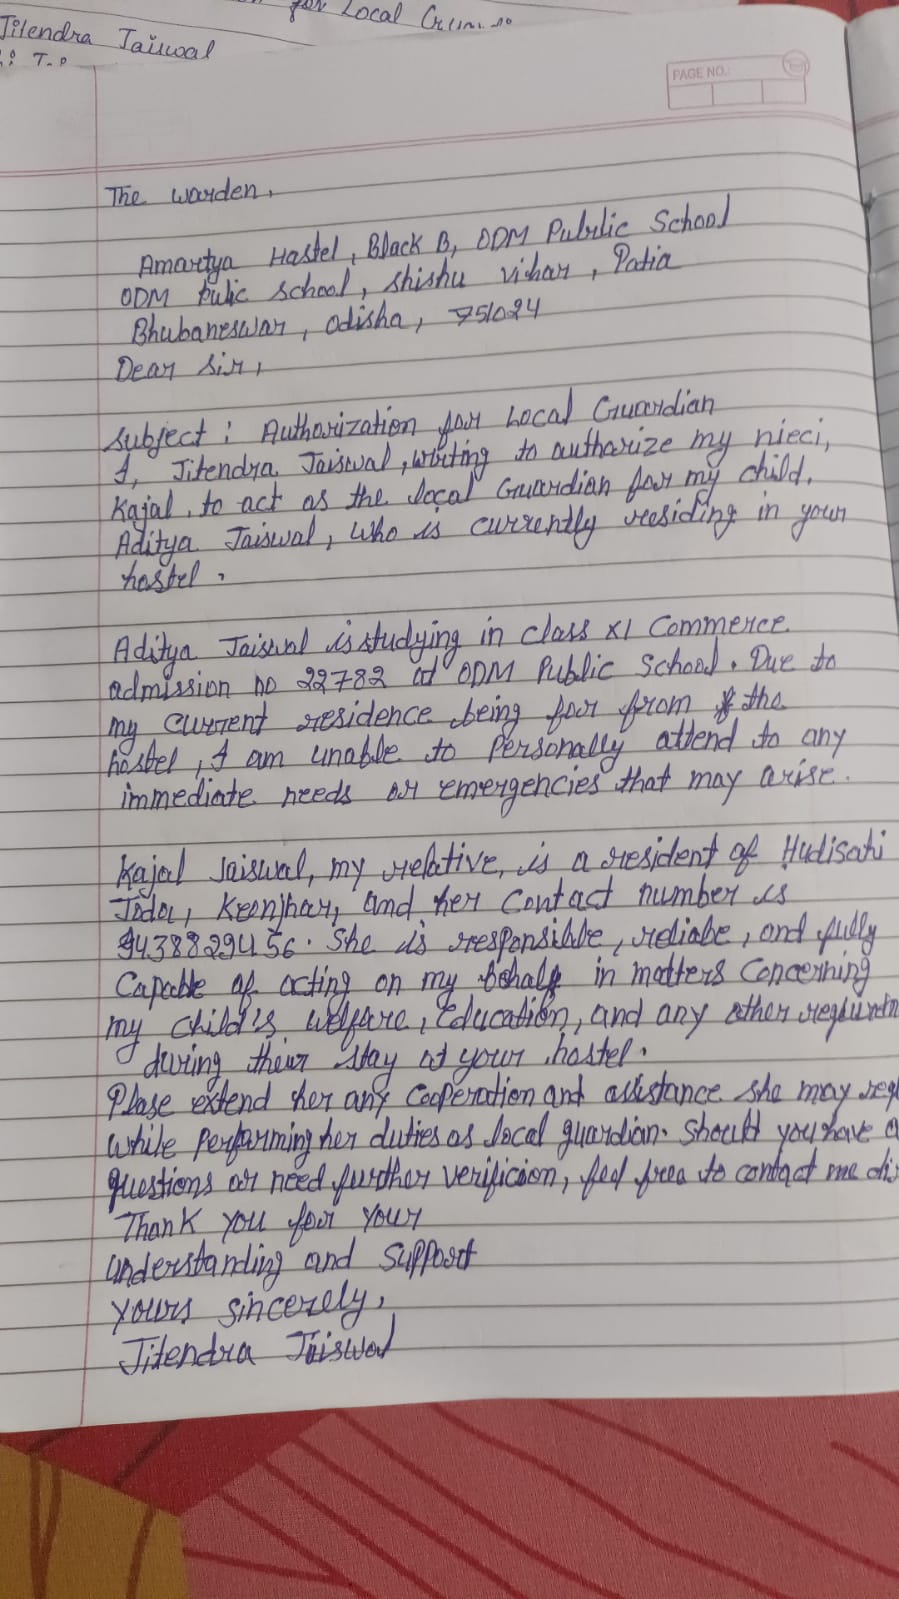 for Local
Jitendra Jaiswal
PAGE NO.:
The warden,
Amartya Hastel, Black B, ODM Public School
ODM Pulic School, Shishu vihar, Patia
Bhubaneswar, odisha, 751024
Dear Sir,
Subject: Authorization for Local Guardian
I, Jitendra Jaiswal, writing to authorize my nieci,
Kajal, to act as the local Guardian for my child,
Aditya Jaiswal, who is currently residing in your
hostel.
Aditya Jaiswal is studying in class XI Commerce
admission no 22782 at ODM Public School. Due to
my current residence being far from the
hostel, I am unable to Personally attend to any
immediate needs or emergencies that may arise.
Kajal Jaiswal, my relative, is a resident of Hudisahi
Joda, Keonjhar, and her contact number is
9438829456. She is responsible, reliabe, and fully
Capable of acting on my behalf in matters concerning
my child's welfare, Education, and any other
during their stay at your hostel.
Plase extend her any cooperation and assistance she may
while performing her duties as local guardian. Should you have
questions or need further verificion, feel free to contact me
Thank you for your
understanding and support
yours sincerely,
Jitendra Jaiswal